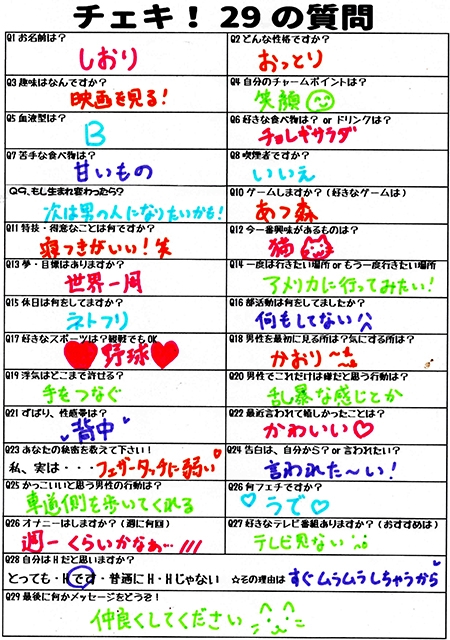 チェキ！ 29の質問
Q1 お名前は？
しおり
Q2 どんな性格ですか？
おっとり
Q3 趣味はなんですか？
映画を見る！
Q4 自分のチャームポイントは？
笑顔
Q5 血液型は？
B
Q6 好きな食べ物は？ or ドリンクは？
チョレギサラダ
Q7 苦手な食べ物は？
甘いもの
Q8 喫煙者ですか？
いいえ
Q9、もし生まれ変わったら？
次は男の人になりたいかも！
Q10 ゲームしますか？（好きなゲームは）
あつ森
Q11 特技・得意なことは何ですか？
寝つきがいい！笑
Q12 今一番興味があるものは？
猫
Q13 夢・目標はありますか？
世界一周
Q14 一度は行きたい場所 or もう一度行きたい場所
アメリカに行ってみたい！
Q15 休日は何をしてますか？
ネトフリ
Q16 部活動は何をしてましたか？
何もしてない
Q17 好きなスポーツは？観戦でもOK
♥野球♥
Q18 男性を最初に見る所は？気にする所は？
かおり〜
Q19 浮気はどこまで許せる？
手をつなぐ
Q20 男性でこれだけは嫌だと思う行動は？
乱暴な感じとか
Q21 ずばり、性感帯は？
背中
Q22 最近言われて嬉しかったことは？
かわいい♡
Q23 あなたの秘密を教えて下さい！
私、実は・・・フェザータッチに弱い
Q24 告白は、自分から？or 言われたい？
言われた〜い！
Q25 かっこいいと思う男性の行動は？
車道側を歩いてくれる
Q26 何フェチですか？
♡うで♡
Q26 オナニーはしますか？（週に何回）
週一くらいかなぁ…///
Q27 好きなテレビ番組ありますか？（おすすめは）
テレビ見ない
Q28 自分はHだと思いますか？
とっても・Hです・普通にH・Hじゃない ☆その理由は すぐムラムラしちゃうから
Q29 最後に何かメッセージをどうぞ！
仲良くしてください